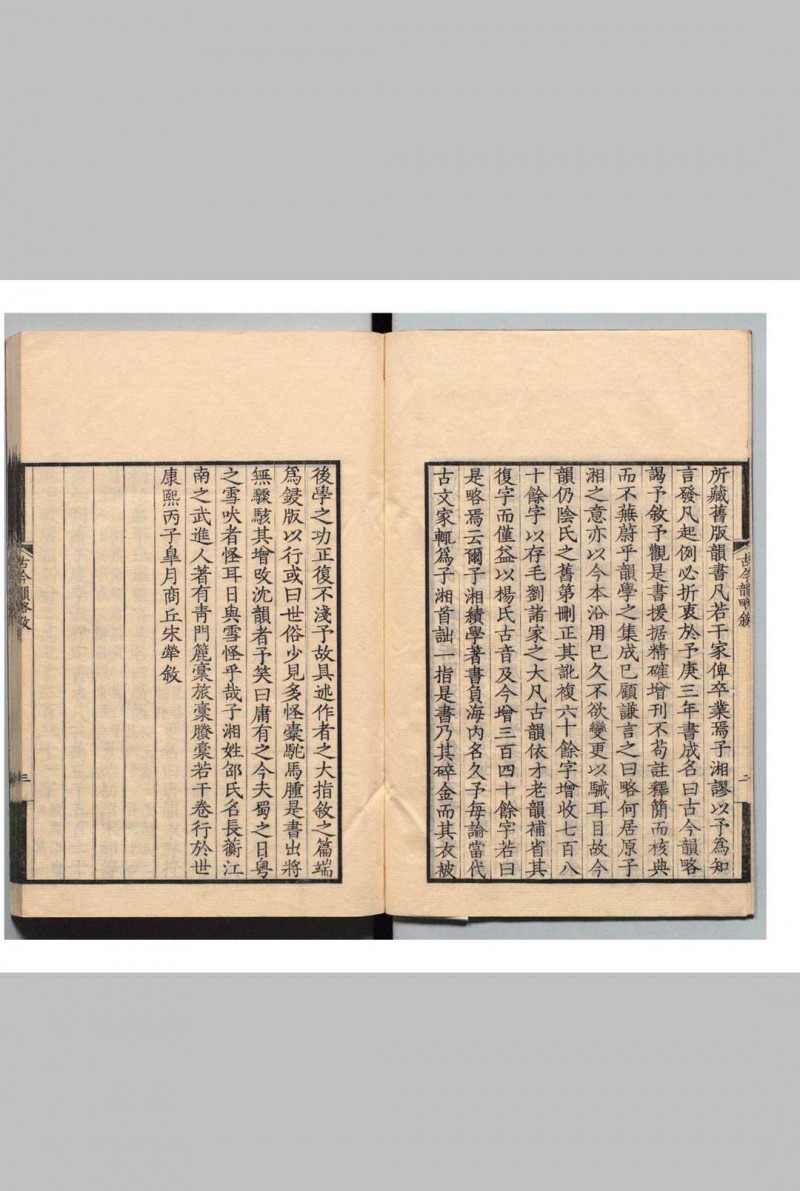 所藏舊版韻書凡若干家俾卒業焉子湘謬以予爲知
言發凡起例必折衷於予庚三年書成名曰古今韻略
謁予敘予觀是書援据精確增刊不苟註釋簡而核典
而不蕪蔚乎韻學之集成已顧謙言之曰略何居原子
湘之意亦以今本沿用已久不欲變更以駴耳目故今
韻仍陰氏之舊第刪正其訛複六十餘字增收七百八
十餘字以存毛劉諸家之大凡古韻依才老韻補省其
復字而僅益以楊氏古音及今增三百四十餘字若曰
是略焉云爾子湘績學著書負海內名久予每論當代
古文家輒爲子湘首詘一指是書乃其碎金而其衣被
古今韻略敘
二
後學之功正復不淺予故具述作者之大指敘之篇端
爲鋟版以行或曰世俗少見多怪橐駝馬腫是書出將
無驟駭其增攺沈韻者予笑曰庸有之今夫蜀之日粤
之雪吠者怪耳日與雪怪乎哉子湘姓邵氏名長蘅江
南之武進人著有青門簏稾旅稾賸稾若干卷行於世
康熙丙子皐月商丘宋犖敘
古今韻略敘
三